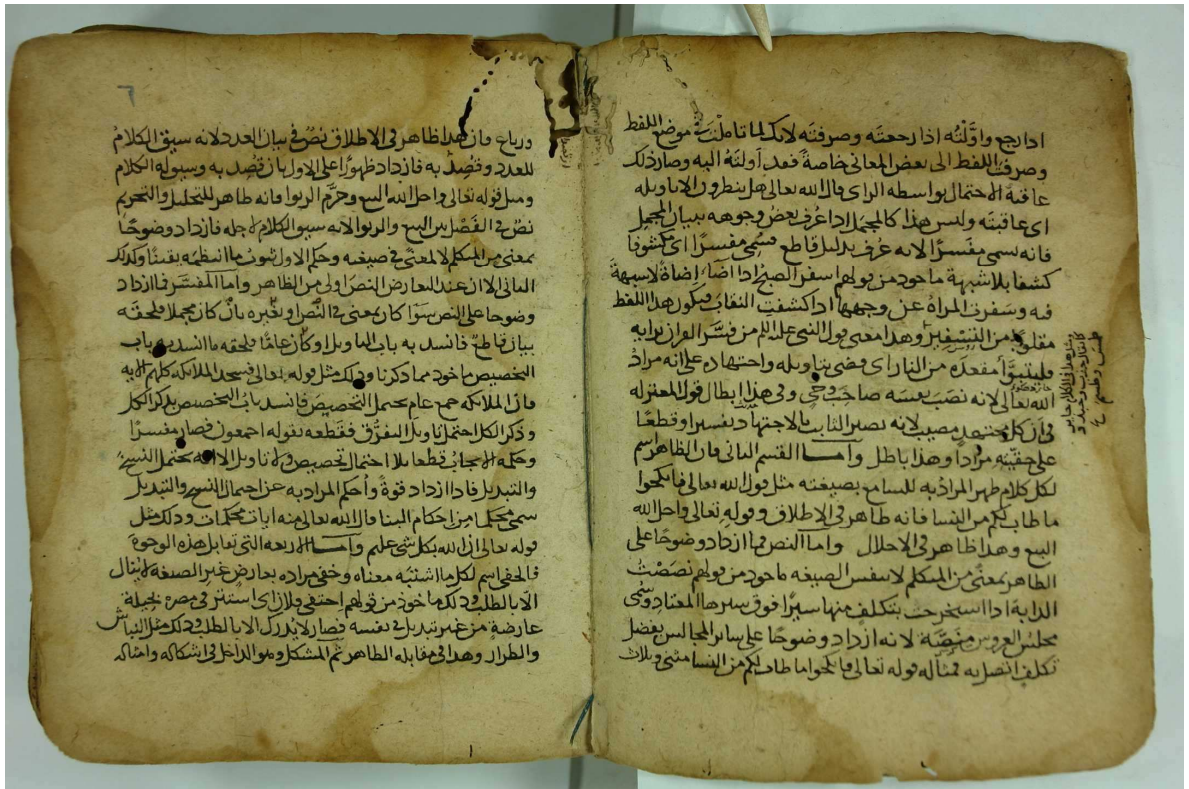 اذا رجع واوّلتُه اذا رجعتَه وصرفتَه لانك لما تاملْتَ في موضع اللفظ
وصرفت اللفظ الى بعض المعاني خاصةً فقد أولتَهُ اليه وصار ذلك
عاقبة الاحتمال بواسطه الراي قال الله تعالى هل ينظرون الا تاويله
اي عاقبتَه وليس هذا كالمجمل اذا عُرف بعض وجوهه ببيان المجمل
فانه سمي مفسرًا لانه عُرف بدليل قاطع فسُمي مفسرًا اي مكشوفا
كشفا بلا شبهة ماخوذ من قولهم اسفر الصبح اذا اضآء إضاةً لا شبهة
فيه وسَفرت المراةُ عن وجهها اذا كشفت النقاب فيكون هذا اللفظ
مقلوبًا من التسفير وهذا معنى قول النبي عليه السلم من فسَّر القران برايه
فليتبوّأ مقعده من النار اي قضى بتاويله واجتهاده على انه مرادُ
الله تعالى لانه نصَب نفسه صاحبَ وحيٍ وفي هذا إبطال قول المعتزله
في أن كل مجتهد مصيب لانه يصير الثابت بالاجتهاد تفسيرا وقطعًا
على حقيقته مرادًا وهذا باطل وأمــا القسم الثاني فان الظاهر اسم
لكل كلام ظهر المرادُ به للسامع بصيغته مثل قول الله تعالى فانكحوا
ما طاب لكم من النسا فانه ظاهر في الإطلاق وقولِه تعالى واحل الله
البيع وهذا ظاهر في الاحلال وأما النص فما ازداد وضوحًا على
الظاهر بمعنًى من المتكلم لا في نفس الصيغه ماخوذ من قولهم نصَصْتُ
الدابة اذا استخرجت بتكلفٍ منها سيرًا فوق سيرها المعتاد وسُمي
مجلس العروس منَصّةً لانه ازداد وضوحًا على ساير المجالس بفضل
تكلف اتصل به فمثاله قوله تعالى فانكحوا ما طاب لكم من النسا مثنى وثلاث
٦
ورباع فان هذا ظاهر في الاطلاق نصٌ في بيان العدد لانه سيق الكلامُ
للعدد وقُصِد به فازداد ظهورًا على الاول بان قُصد به وسيق له الكلام
ومثل قوله تعالى واحل الله البيع وحرّم الربوا فانه ظاهر للتحليل والتحريم
نصٌ في الفَصْل بين البيع والربوا لانه سيق الكلام لاجله فازداد وضوحًا
بمعنى من المتكلم لا لمعنى في صيغته وحكم الاول ثبوت ما انتظمه يقينًا وكذلك
الثاني الا ان عند التعارض النص اولى من الظاهر وأما المفسَّر فما ازداد
وضوحا على النص سوًا كان بمعنى في النص او بغيره بان كان مجملا فلحقه
بيان قاطع فانسد به باب التاويل او كان عامًّا فلحقه ما انسد به باب
التخصيص ماخوذ مما ذكرنا وذلك مثل قوله تعالى فسجد الملائكة كلهم الايه
فان الملائكه جمع عام يحتمل التخصيصَ فانسد بابُ التخصيص بذكر الكل
وذكر الكل احتمل تاويل التفرُّق فقطعه بقوله اجمعون فصار مفسرًا
وحكمه الايجاب قطعا بلا احتمال تخصيص ولا تاويل الا انه يحتمل النسخ
والتبديل فاذا ازداد قوةً وأُحكم المراد به عن احتمال النسخ والتبديل
سمي محكما من احكام البنا قال الله تعالى منه ايات محكمات وذلك مثل
قوله تعالى ان الله بكل شي عليم وأمــا الاربعه التي تقابل هذه الوجوهَ
فالخفي اسم لكل ما اشتبه معناه وخفي مراده بعارض غير الصيغه لا ينال
الا بالطلب وذلك ماخوذ من قولهم اختفى فلان اي استتر في مصره بحيلةٍ
عارضةٍ من غير تبديل في نفسه فصار لا يُدرك الا بالطلب وذلك مثل النباش
والطرار وهذا في مقابله الظاهر ثم المشكل وهو الداخل في اشكاله وامثاله